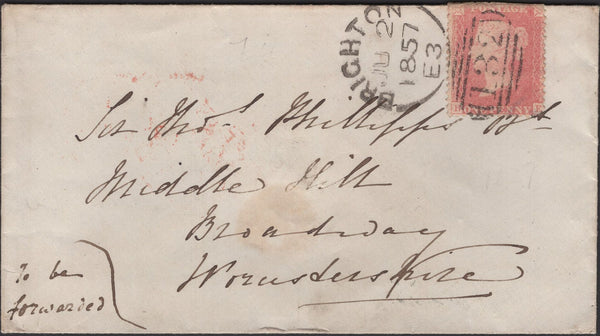 BRIGHTO
JU 22
1857
E3
132
NNY
Sir Thos. Phillipps Bt
Middle Hill
Broadway
Worcestershire
To be
forwarded